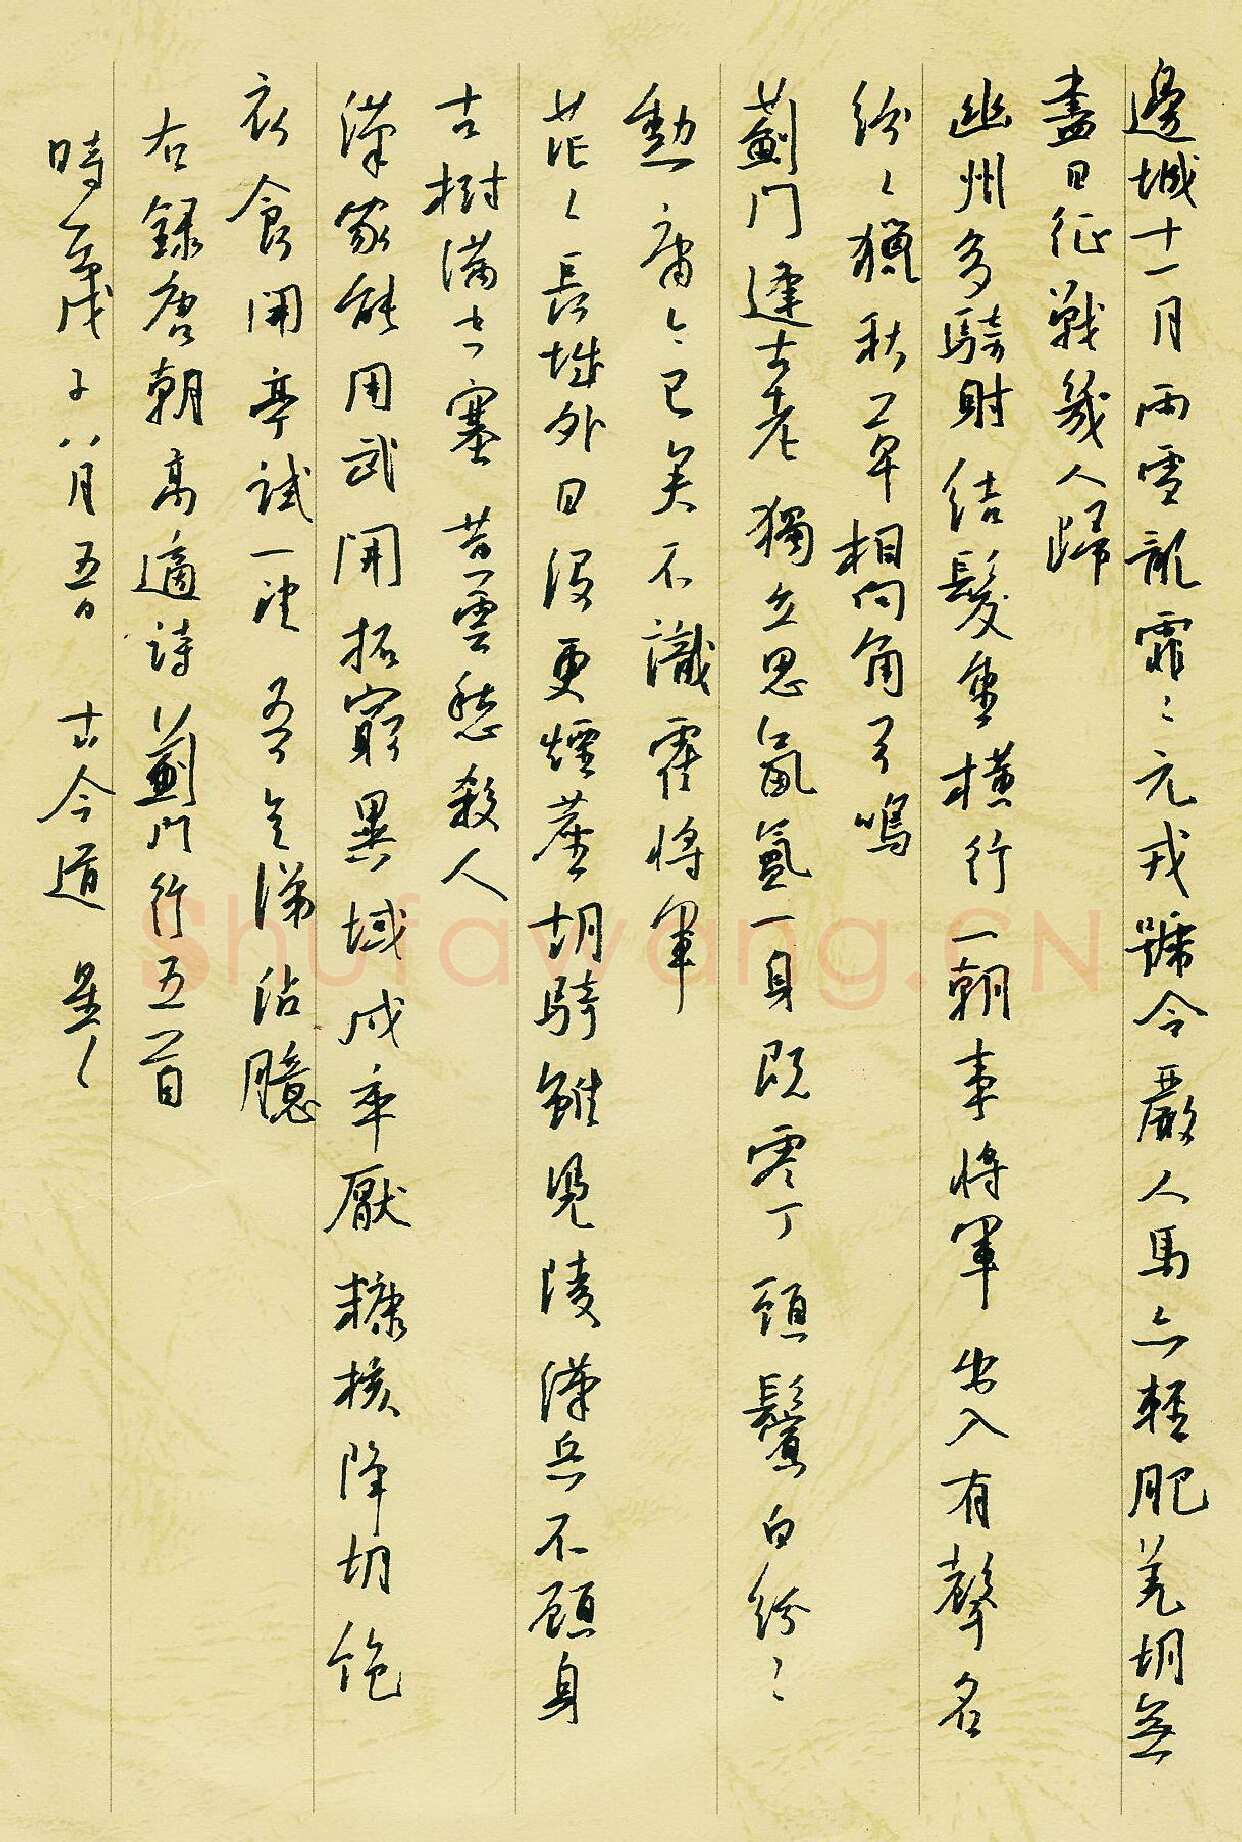 邊城十一月雨雪亂霏〻元戎號令嚴人馬亦輕肥羌胡無
盡日征戰幾人歸
幽州多騎射結髮重橫行一朝事將軍出入有聲名
紛〻獵秋草相向角弓鳴
薊門逢古老獨立思氛氳一身既零丁頭鬢白紛〻
勳庸今已矣不識霍將軍
茫〻長城外日沒更煙塵胡騎雖憑陵漢兵不顧身
古樹滿空塞黃雲愁殺人
漢家能用武開拓窮異域戍卒厭糠核降胡飽
衣食開亭試一望吾欲涕沾臆
右錄唐朝高適詩薊門行五首
時在戊子八月五日古今道
Shufawang.CN